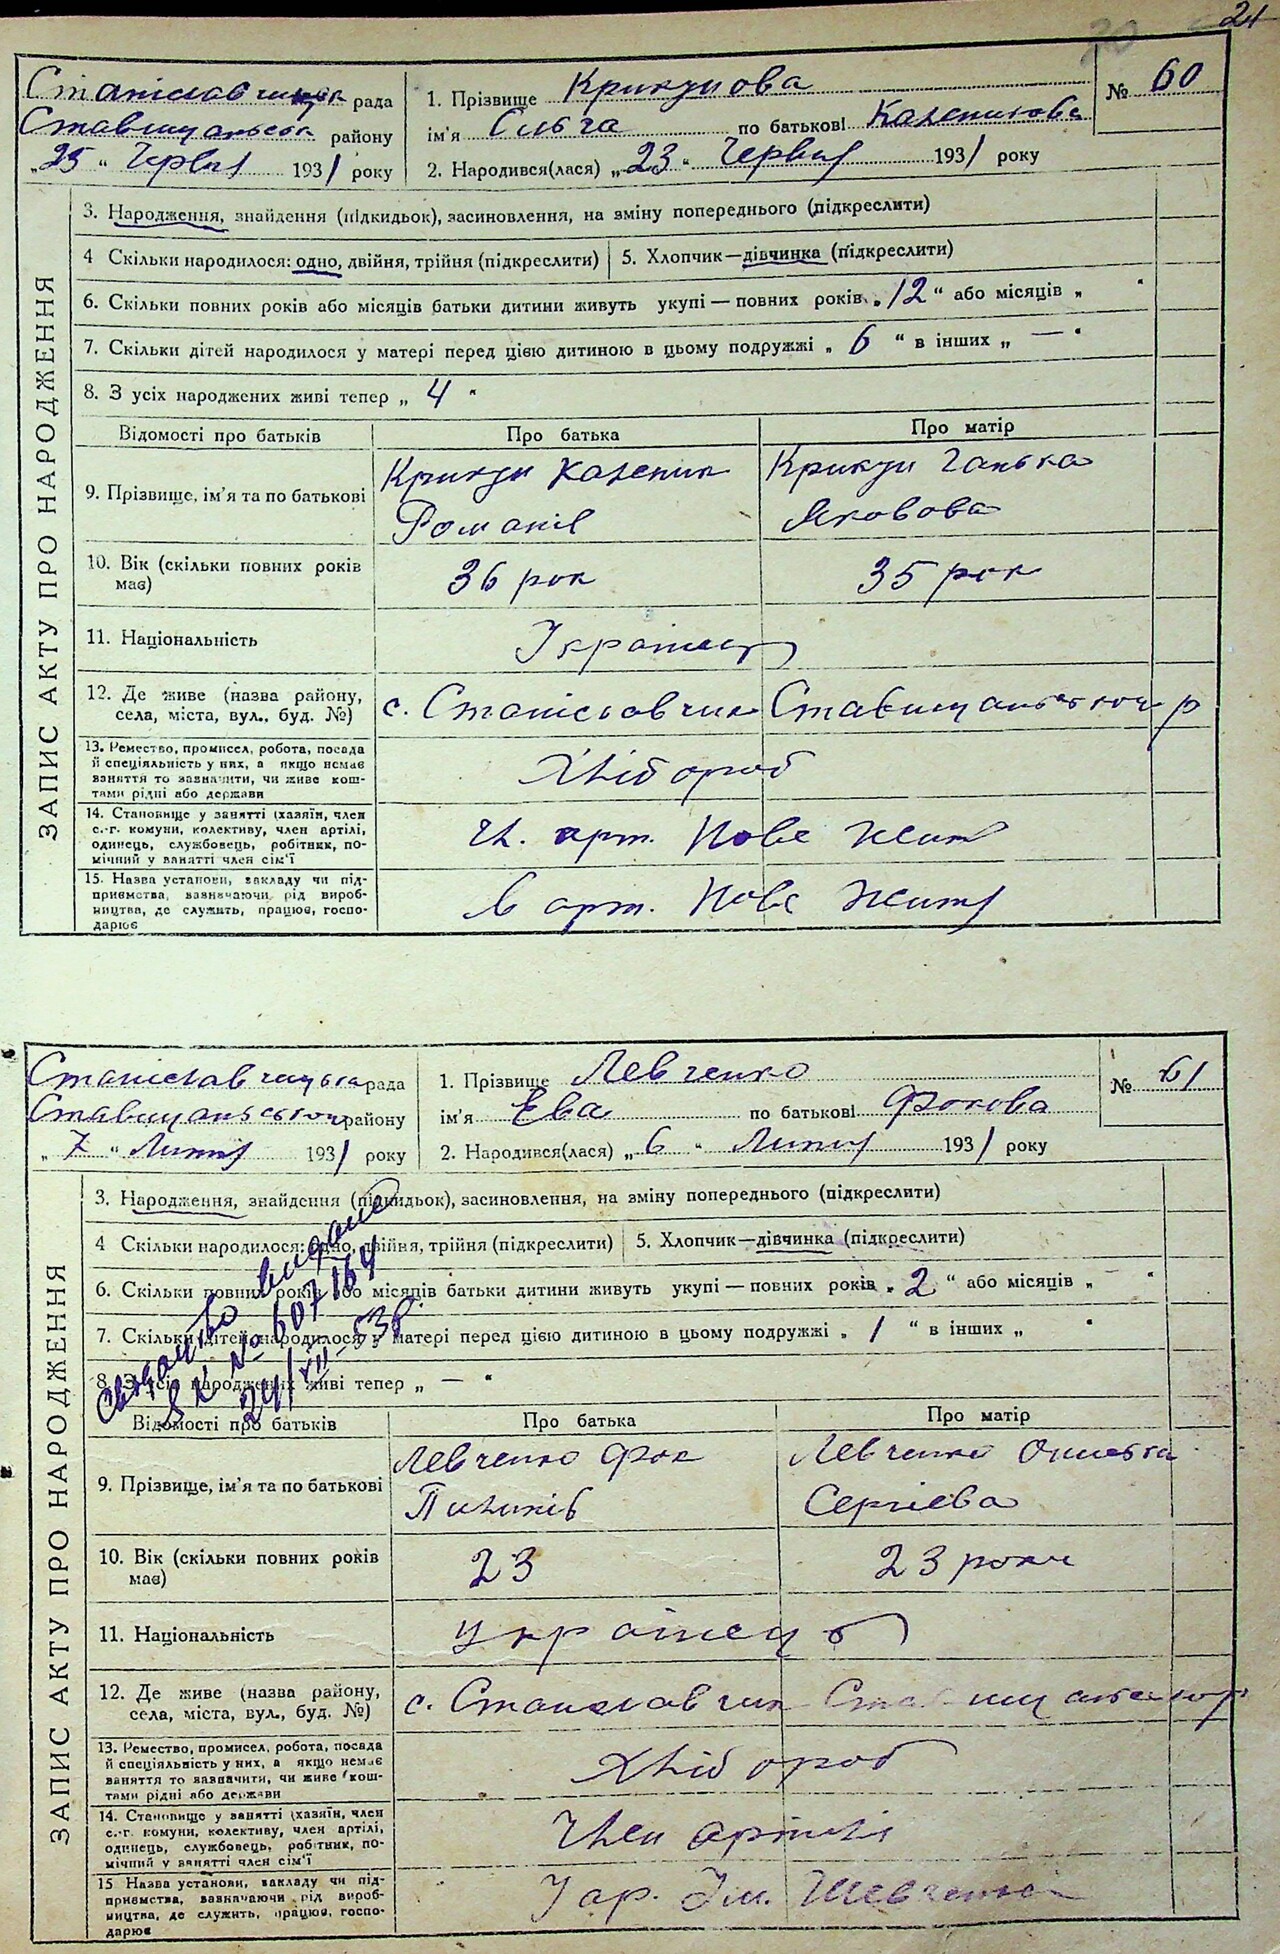 21
30
Станіславчицька рада
Ставищанськ району
„25“ Червня 1931 року
1. Прізвище Крикунова
ім'я Ольга по батькові Каленикова
2. Народився(лася) „23“ Червня 1931 року
№ 60
ЗАПИС АКТУ ПРО НАРОДЖЕННЯ
3. Народження, знайдення (підкидьок), засиновлення, на зміну попереднього (підкреслити)
4 Скільки народилося: одно, двійня, трійня (підкреслити) 5. Хлопчик—дівчинка (підкреслити)
6. Скільки повних років або місяців батьки дитини живуть укупі — повних років „12“ або місяців „ “
7. Скільки дітей народилося у матері перед цією дитиною в цьому подружжі „ 6 “ в інших „ — “
8. З усіх народжених живі тепер „ 4 “
Відомості про батьків Про батька Про матір
9. Прізвище, ім'я та по батькові
Крикун Каленик
Романів
Крикун Ганька
Яковова
10. Вік (скільки повних років
має)
36 рок
35 рок
11. Національність
Українец
12. Де живе (назва району,
села, міста, вул., буд. №)
с. Станіславчик Ставищанського р
13. Ремество, промисел, робота, посада
й спеціяльність у них, а якщо немає
заняття то зазначити, чи живе кош-
тами рідні або держави
Хлібороб
14. Становище у занятті (хазяїн, член
с.-г. комуни, колективу, член артілі,
одинець, службовець, робітник, по-
мічний у занятті член сім'ї
Чл. арт. Нове Житт
15. Назва установи, закладу чи під-
приємства, зазначаючи рід вироб-
ництва, де служить, працює, госпо-
дарює
в арт. Нове Життя
Станіславчицька рада
Ставищанського району
„ 7 “ Липня 1931 року
1. Прізвище Левченко
ім'я Ева по батькові Фокова
2. Народився(лася) „ 6 “ Липня 1931 року
№ 61
ЗАПИС АКТУ ПРО НАРОДЖЕННЯ
3. Народження, знайдення (підкидьок), засиновлення, на зміну попереднього (підкреслити)
4 Скільки народилося: одно, двійня, трійня (підкреслити) 5. Хлопчик—дівчинка (підкреслити)
6. Скільки повних років або місяців батьки дитини живуть укупі — повних років „ 2 “ або місяців „ — “
7. Скільки дітей народилося у матері перед цією дитиною в цьому подружжі „ 1 “ в інших „ “
8. З усіх народжених живі тепер „ — “
Свідоцтво видано
№ 607164
24/XII-53р
Відомості про батьків Про батька Про матір
9. Прізвище, ім'я та по батькові
Левченко Фок
Пилипів
Левченко
Сергієва
10. Вік (скільки повних років
має)
23
23 роки
11. Національність
українець
12. Де живе (назва району,
села, міста, вул., буд. №)
с. Станіславчик Ставищанського р
13. Ремество, промисел, робота, посада
й спеціяльність у них, а якщо немає
заняття то зазначити, чи живе кош-
тами рідні або держави
Хлібороб
14. Становище у занятті (хазяїн, член
с.-г. комуни, колективу, член артілі,
одинець, службовець, робітник, по-
мічний у занятті член сім'ї
Член артілі
15 Назва установи, закладу чи під-
приємства, зазначаючи рід вироб-
ництва, де служить, працює, госпо-
дарює
У ар. Ім. Шевченка